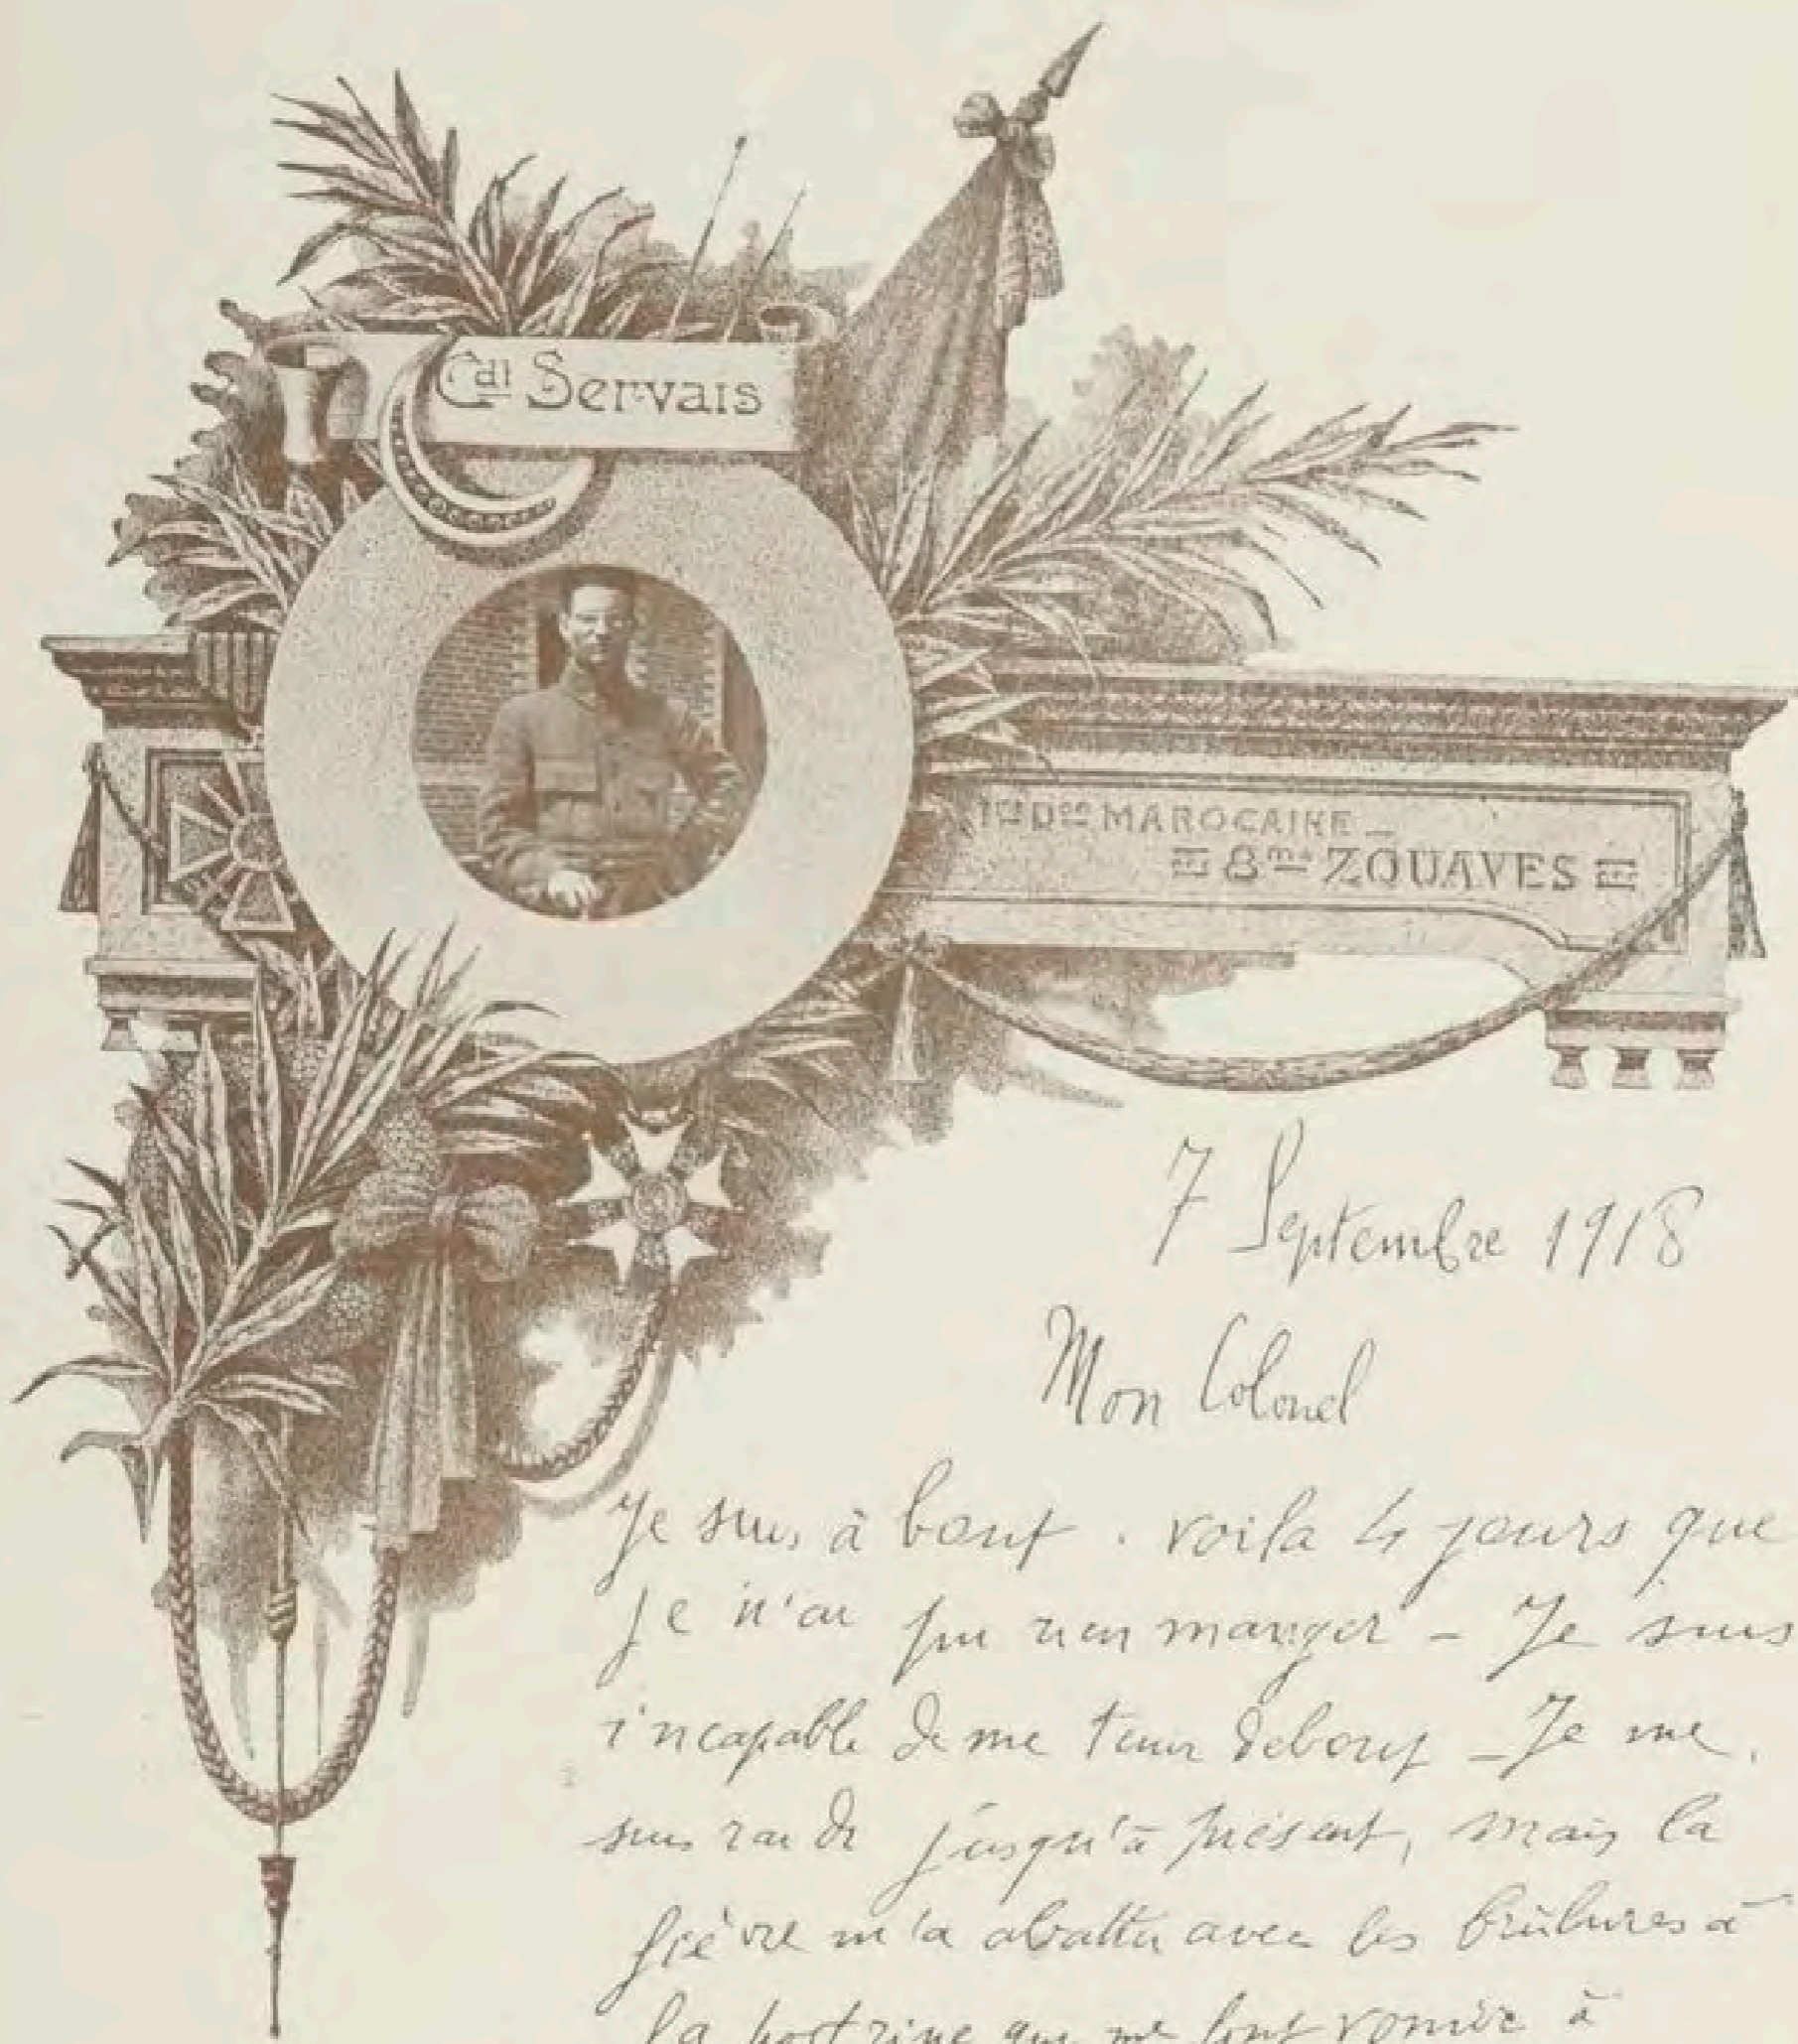 Cdt Servais
1ère Don MAROCAINE _
8me ZOUAVES
7 Septembre 1918
Mon Colonel
Je suis à bout. voila 4 jours que
je n'ai pu rien manger – Je suis
incapable de me tenir debout – Je me
suis raidi jusqu'à présent, mais la
fièvre m'a abattu avec les brûlures à
la poitrine qui me font vomir à